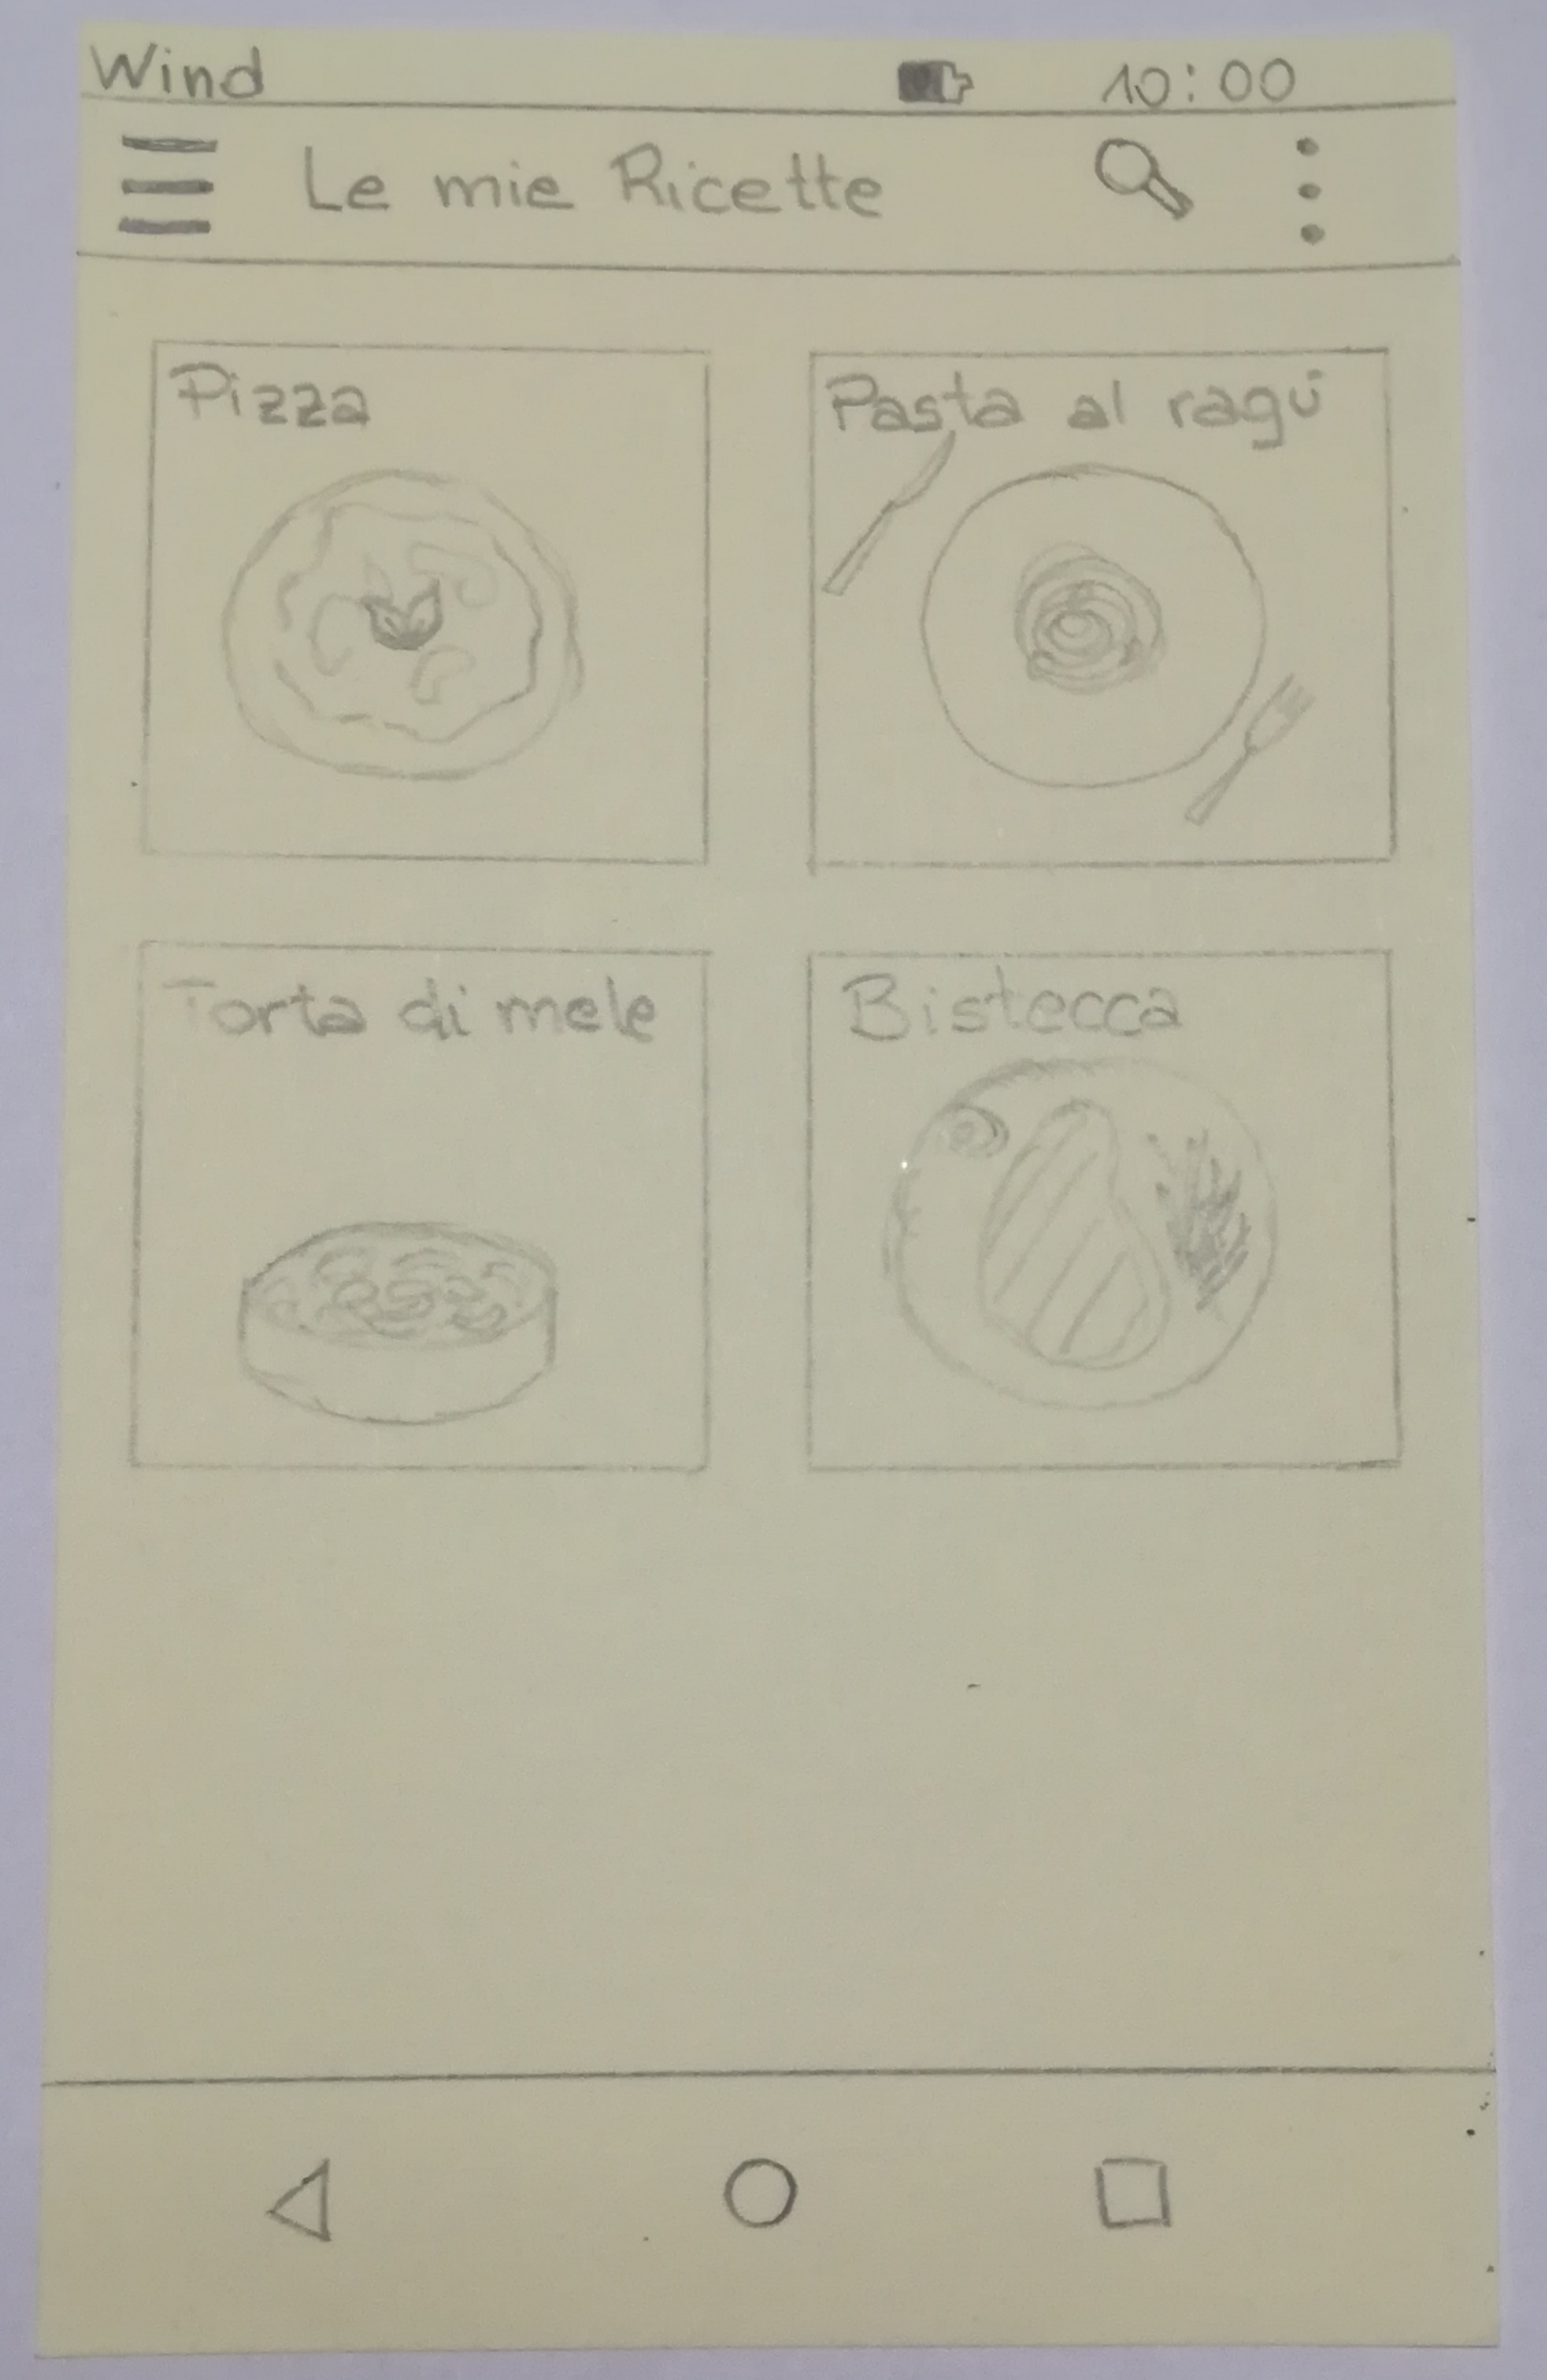 Wind 10:00
Le mie Ricette
Pizza
Pasta al ragù
Torta di mele
Bistecca